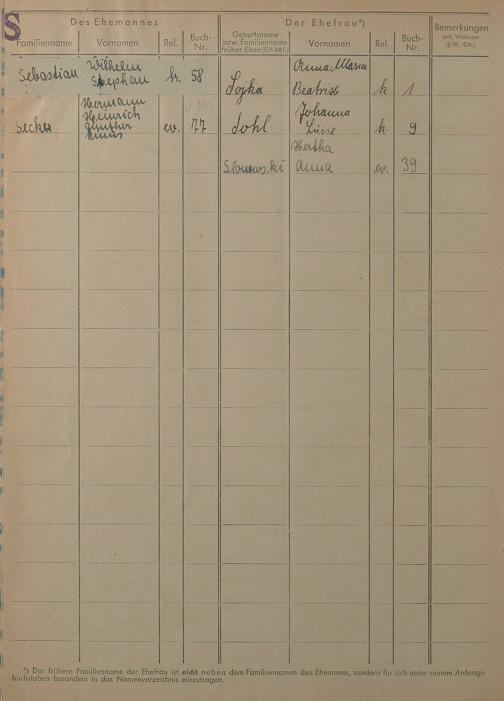 S
Des Ehemannes
Der Ehefrau*)
Bemerkungen
evtl. Wohnort
(§ 86, DA.)
Familienname
Vornamen
Rel.
Buch-
Nr.
Geburtsname
bzw. Familienname
früher. Ehen (DA 88 f.)
Vornamen
Rel.
Buch-
Nr.
Sebastian
Wilhelm
Stephan
k. 58
Anna Maria
Beatrix
k 1
Hermann
Heinrich
Günther
ev. 77
Johanna
Luise
k 9
Hertha
Anna
ev. 39
*) Der frühere Familienname der Ehefrau ist nicht neben dem Familiennamen des Ehemanns, sondern für sich unter seinem Anfangs-
buchstaben besonders in das Namenverzeichnis einzutragen.